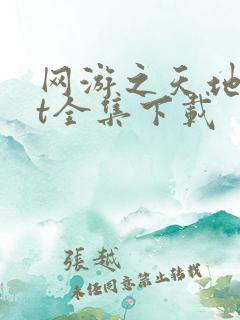 网游之天地
t全集下载
張越
未经同意禁止转载